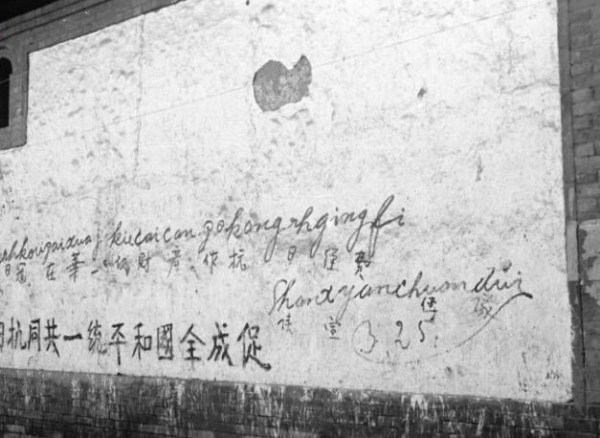 rhkouzaixua kiecaican zokongrhgingfi
日寇在華一切財產作抗日經費
Shanxyanchuandui
陝宣傳隊
3.25.
促成全國和平統一共同抗日